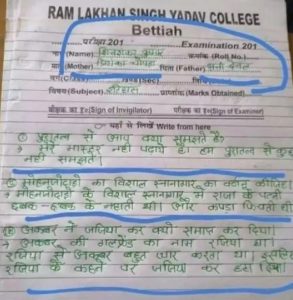 RAM LAKHAN SINGH YADAV COLLEGE
Bettiah
परीक्षा 201 Examination 201
नाम(Name) क्रमांक (Roll No.)
(Mother) पिता (Father) सनी देवल
वर्ग(Class) (Sec)
विषय(Subject) इतिहास प्राप्तांक (Marks Obtained)
वीक्षक का ह०(Sign of Invigilator) (Sign of Examiner)
यहाँ से लिखें Write from here
पुरातत्व से आप क्या समझते हैं?
मेरे मास्टर नहीं पढ़ाये हैं। हम पुरातत्व से कुछ
नहीं समझते।
मोहनजोदाड़ो का विशाल स्नानागार का वर्णन कीजिए।
मोहनजोदाड़ो के विशाल स्नानागार में राजा के पत्नी
छपक-छपक के नहाती थी। और कपड़ा फिचती थी
अकबर ने जजिया कर क्यों समाप्त कर दिया।
अकबर की गर्लफ्रेंड का नाम रजिया था।
रजिया से अकबर बहुत प्यार करता था। इसलिए
रजिया के कहने पर जजिया कर हटा दिया।